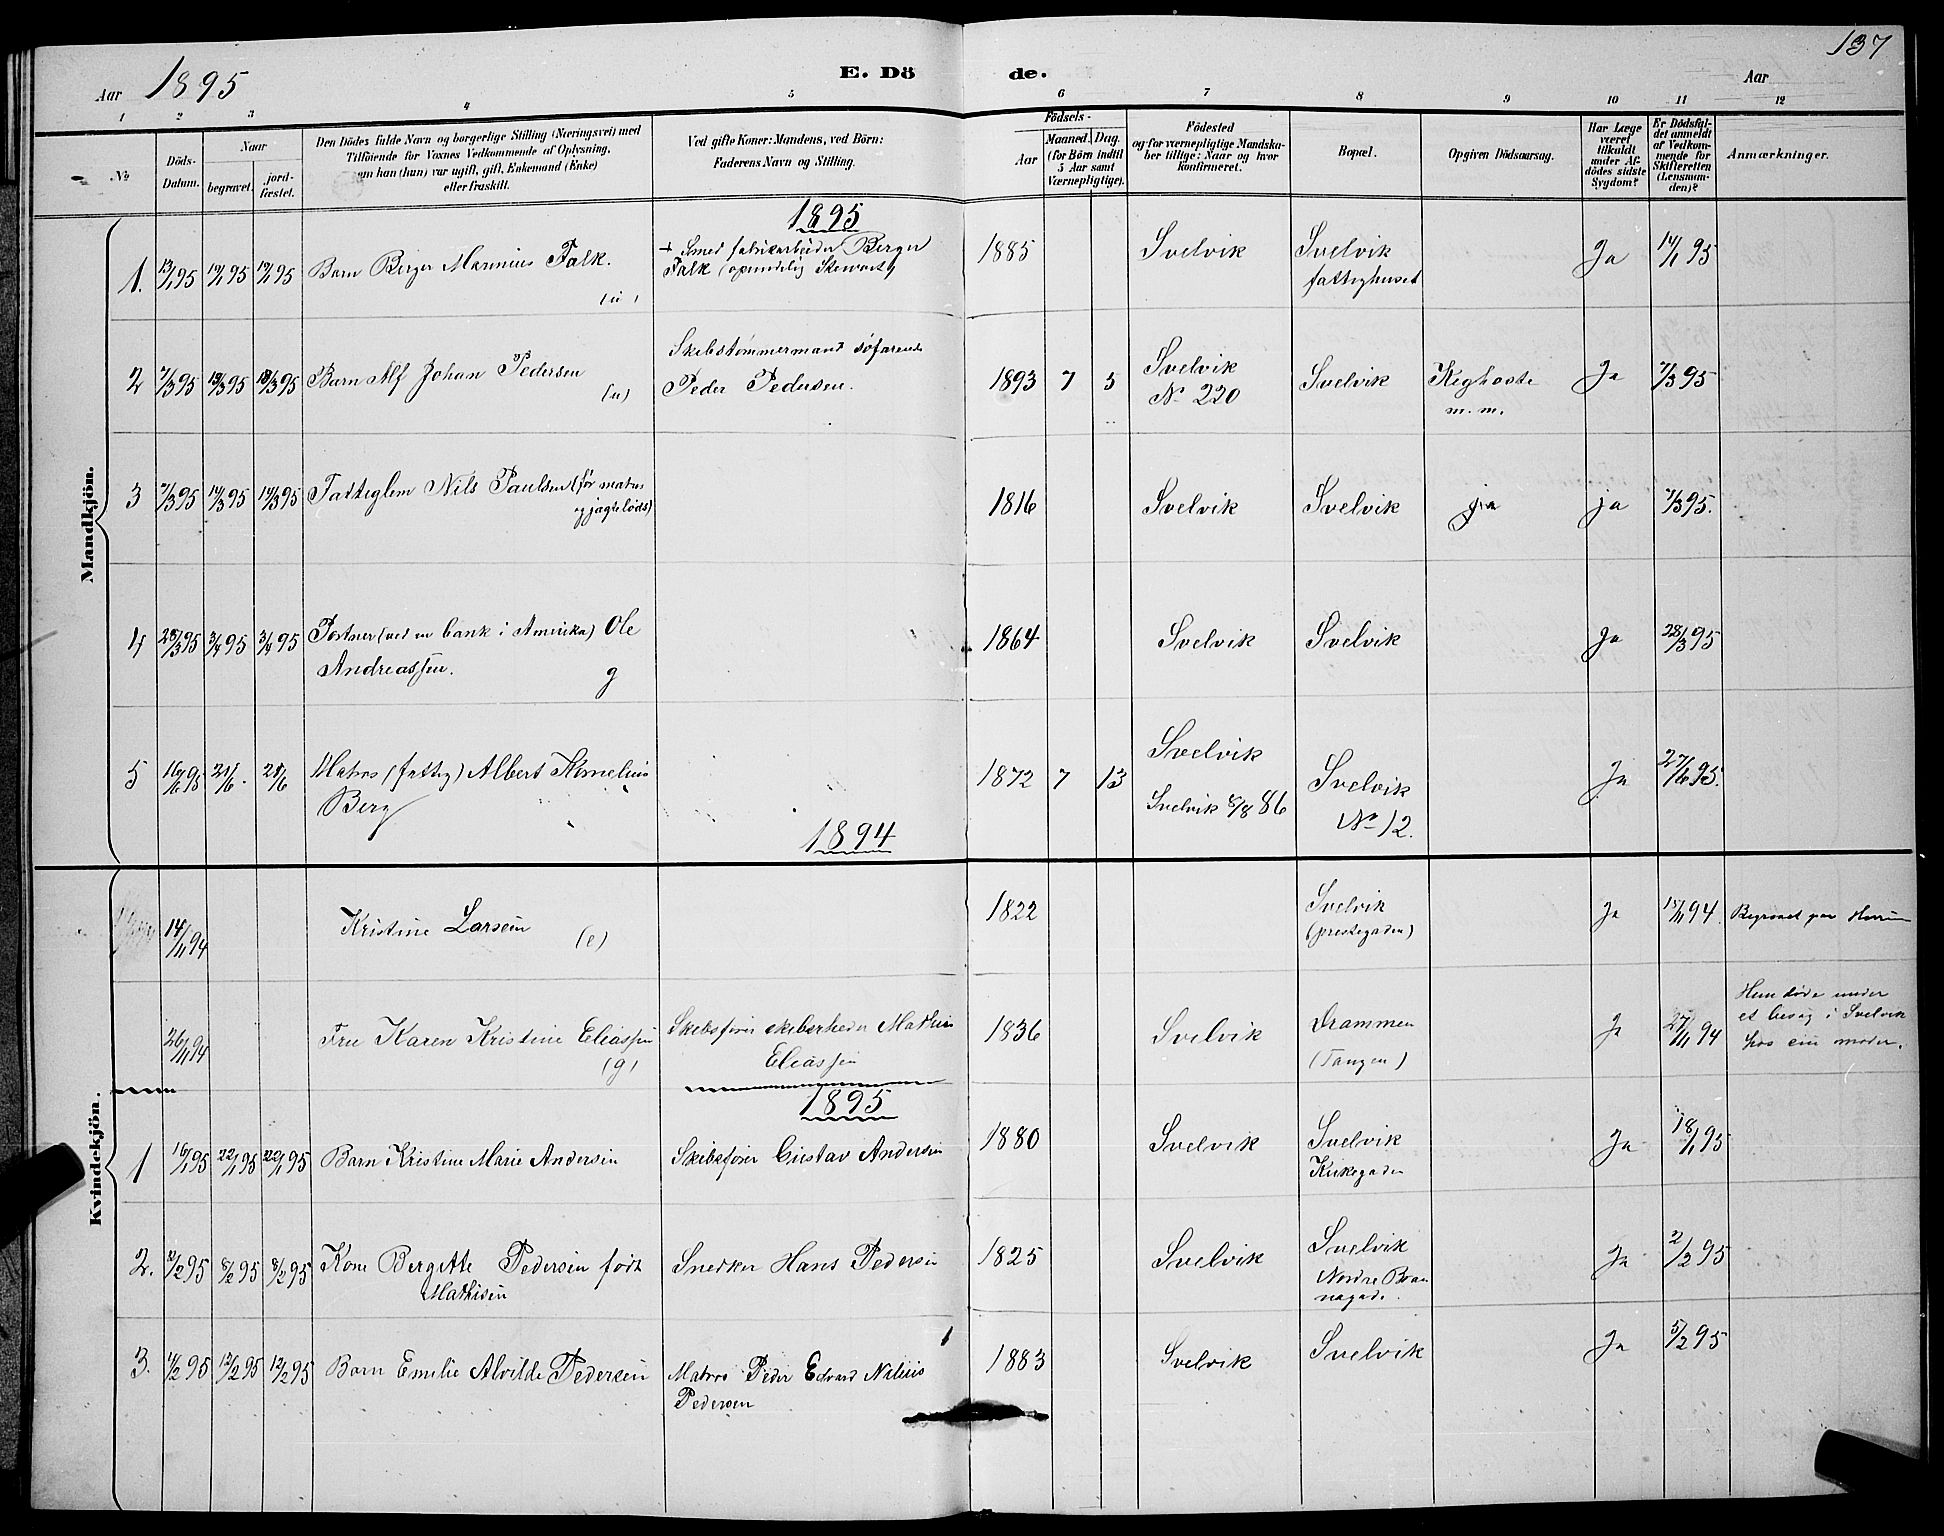 137
Aar 1895
E. Dö de.
Aar
1 2 3 4 5 6 7 8 9 10 11 12
No
Döds-
Datum.
Naar
begravet.
jord-
fæstet.
Den Dödes fulde Navn og borgerlige Stilling (Næringsvei) med
Tilföiende for Voxnes Vedkommende af Oplysning,
om han (hun) var ugift, gift, Enkemand (Enke)
eller fraskilt.
Ved gifte Koner: Mandens, ved Börn:
Faderens Navn og Stilling.
Födsels-
Aar
Maaned. Dag.
(for Börn indtil
5 Aar samt
Værnepligtige).
Födested
og for værnepligtige Mandska-
ber tillige: Naar og hvor
konfirmeret.
Bopæl.
Opgiven Dödsaarsag.
Har Læge
været
tilkaldt
under Af-
dödes sidste
Sygdom?
Er Dödsfal-
det anmeldt
af Vedkom-
mende for
Skifteretten
(Lensman-
den)?
Anmærkninger.
Mandkjön.
1895
1. 13/1 95 19/1 95 19/1 95 Barn Berger Marinius Falk. (u) + Smed fabrikarbeider Berger 1885 Svelvik Svelvik Ja 14/1 95
Falk
fattighuset
2 7/3 95 13/3 95 13/3 95 Barn Alf Johan Pedersen (u) Skibstømmermand søfarende
Peder Pedersen. 1893 7 5 Svelvik Svelvik Kighoste Ja 7/3 95
No 220 m. m.
3 7/3 95 14/3 95 14/3 95 Fattiglem Nils Paulsen (før matros
og jagtlods) 1816 Svelvik Svelvik ja ja 7/3 95.
4 28/3 95 3/4 95 3/4 95 Portner (ved en bank i Amerika) Ole 1864 Svelvik Svelvik Ja 28/3 95
Andreassen. g
5 16/6 95 21/6. 21/6 Matros (fattig) Albert Kornelius 1872 7 13 Svelvik Svelvik Ja 27/6 95.
Berg Svelvik 8/8 86 No 12.
1894
Kvindekjön.
14/11 94 Kristine Larsen (e) 1822 Svelvik Ja 15/11 94. Begravet paa
(prestegaden)
26/11 94 Fru Karen Kristine Eliassen (g) Skibsfører skibsrheder Mathias 1836 Svelvik Drammen Ja 27/11 94 Hun døde under
Eliassen (Tangen) et besøg i Svelvik
hos sin moder.
1895
1 16/1 95 22/1 95 22/1 95 Barn Kristine Marie Andersen Skibsfører Gustav Andersen 1880 Svelvik Svelvik Ja 18/1 95
Kirkegaden
2. 2/2 95 8/2 95 8/2 95 Kone Bergitte Pedersen født Snedker Hans Pedersen 1825 Svelvik Svelvik Ja 2/2 95
Mathisen Nordre Bran
nagade.
3. 4/2 95 12/2 95 12/2 95 Barn Emilie Alvilde Pedersen Matros Peder Edvard Nilius 1883 Svelvik Svelvik Ja 5/2 95
Pedersen